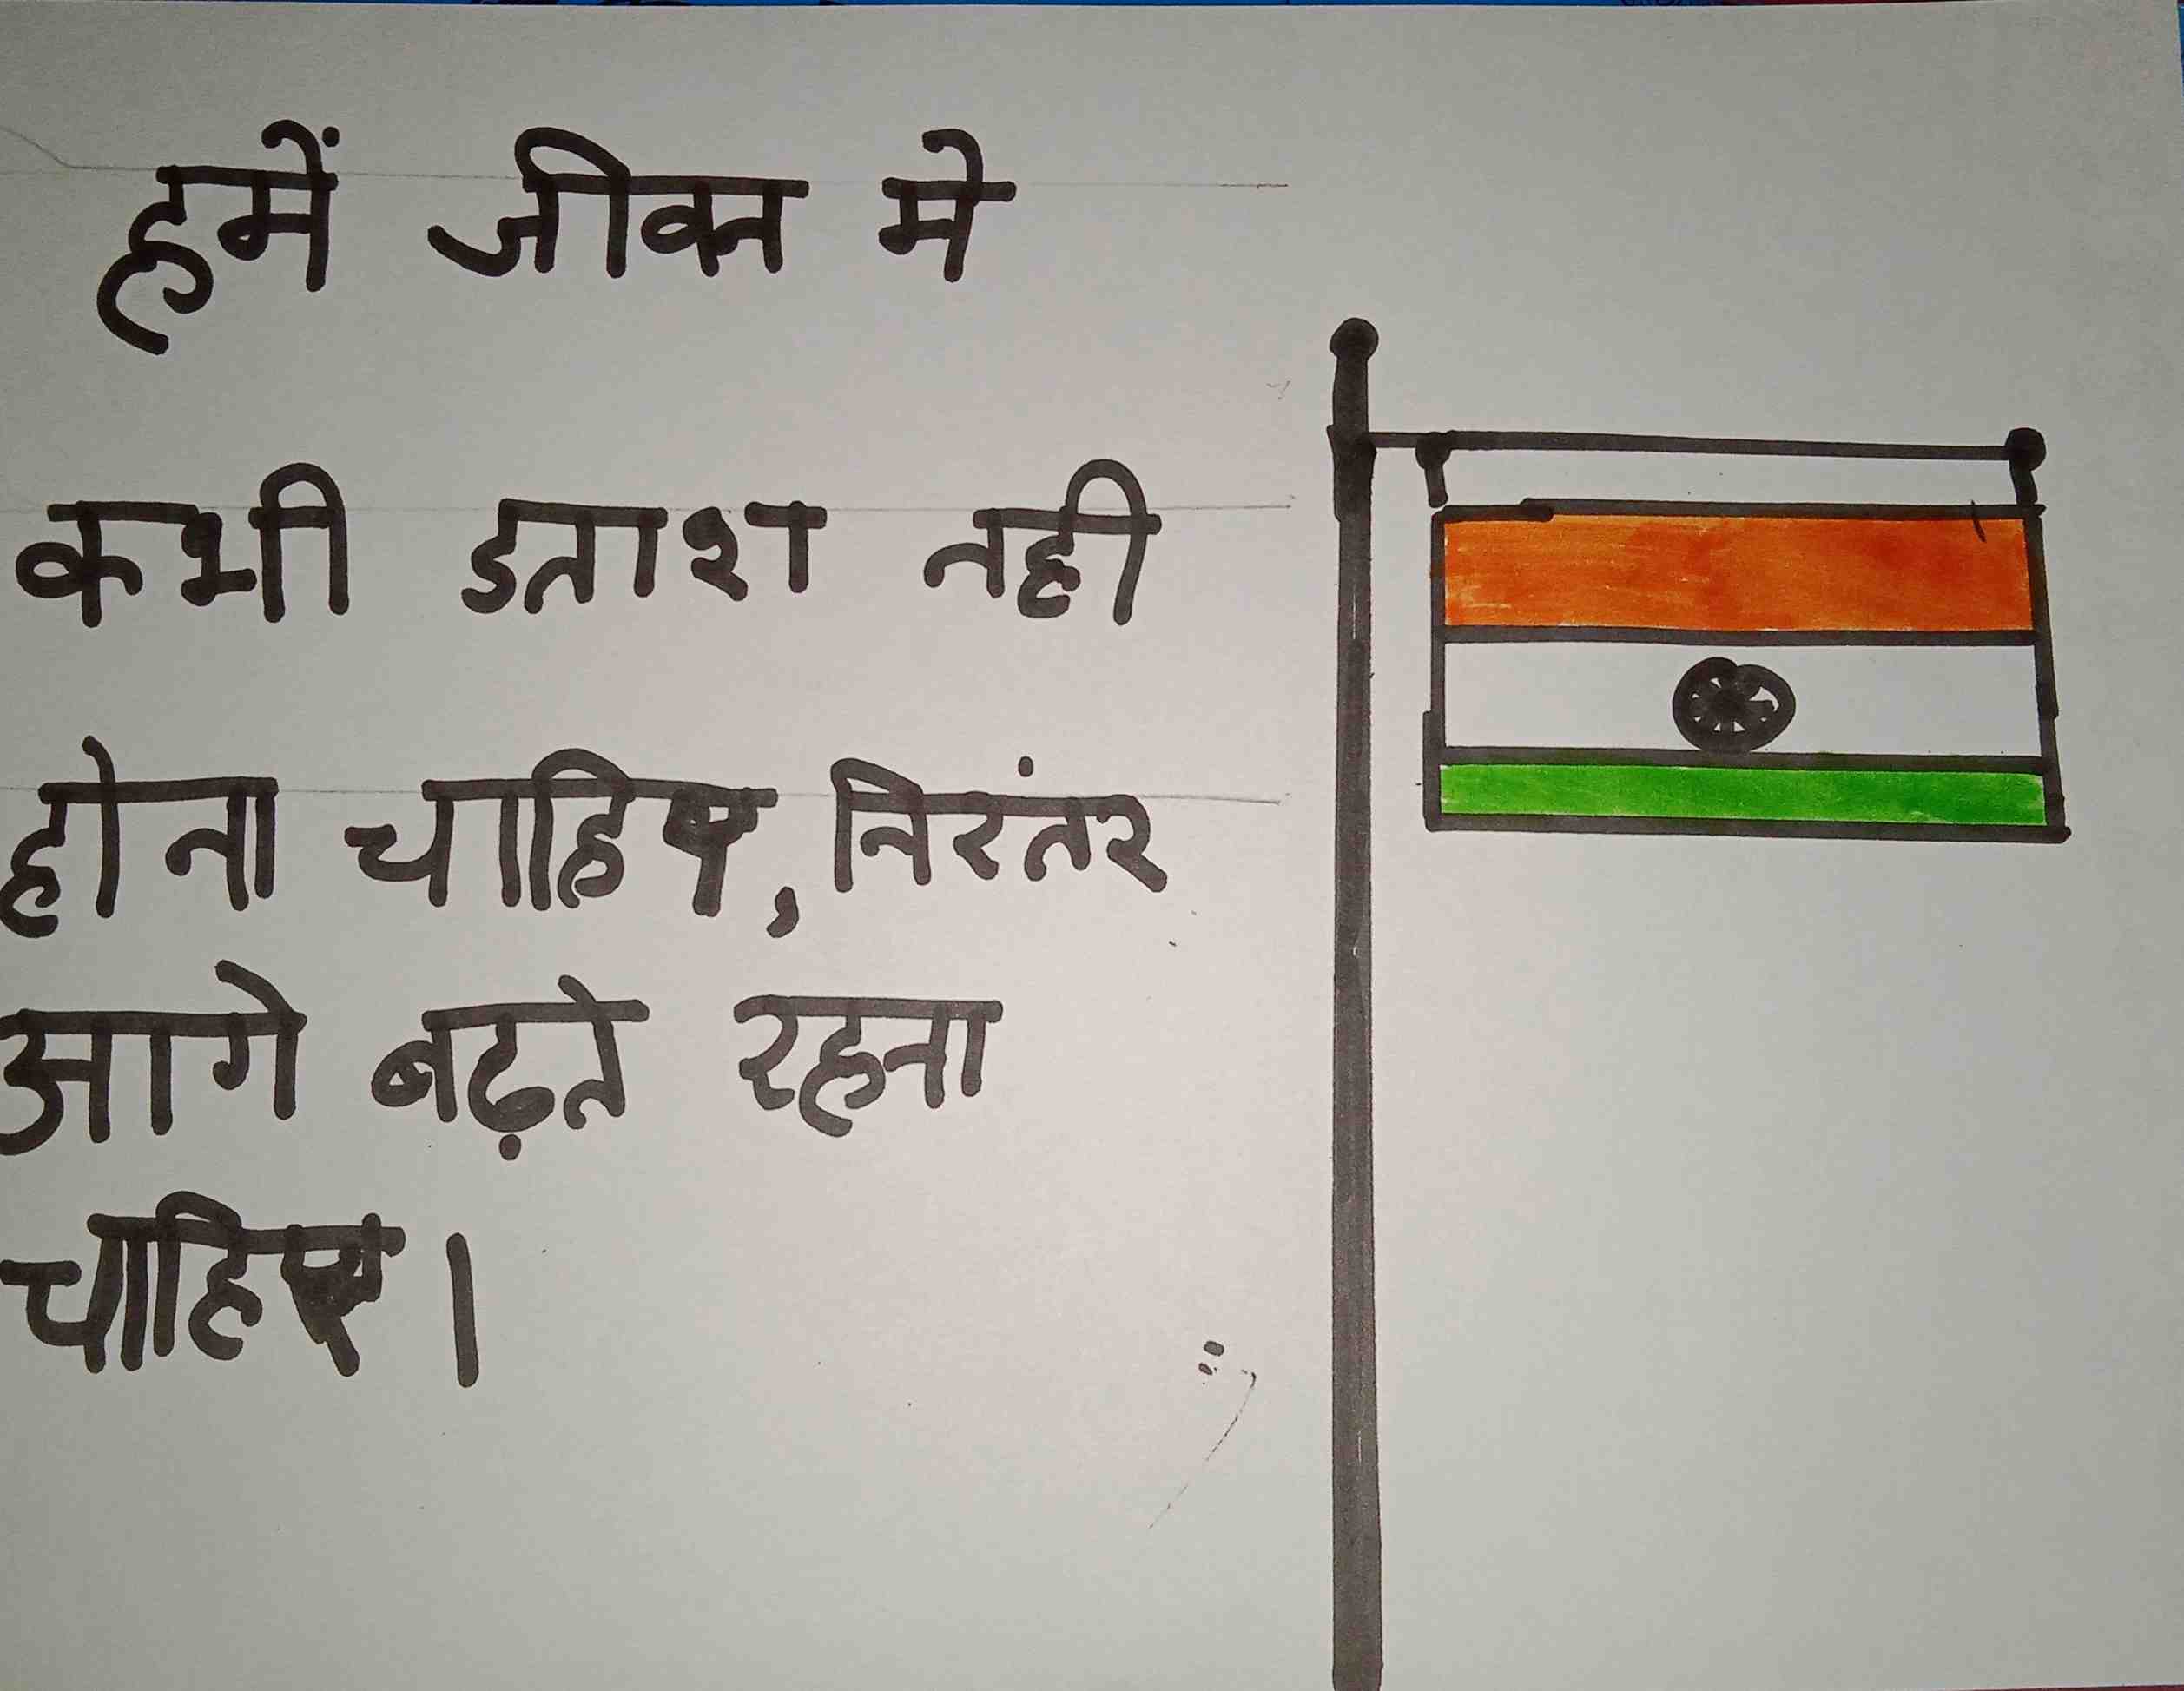 हमें जीवन मे
कभी हताश नही
होना चाहिए, निरंतर
आगे बढ़ते रहना
चाहिए।